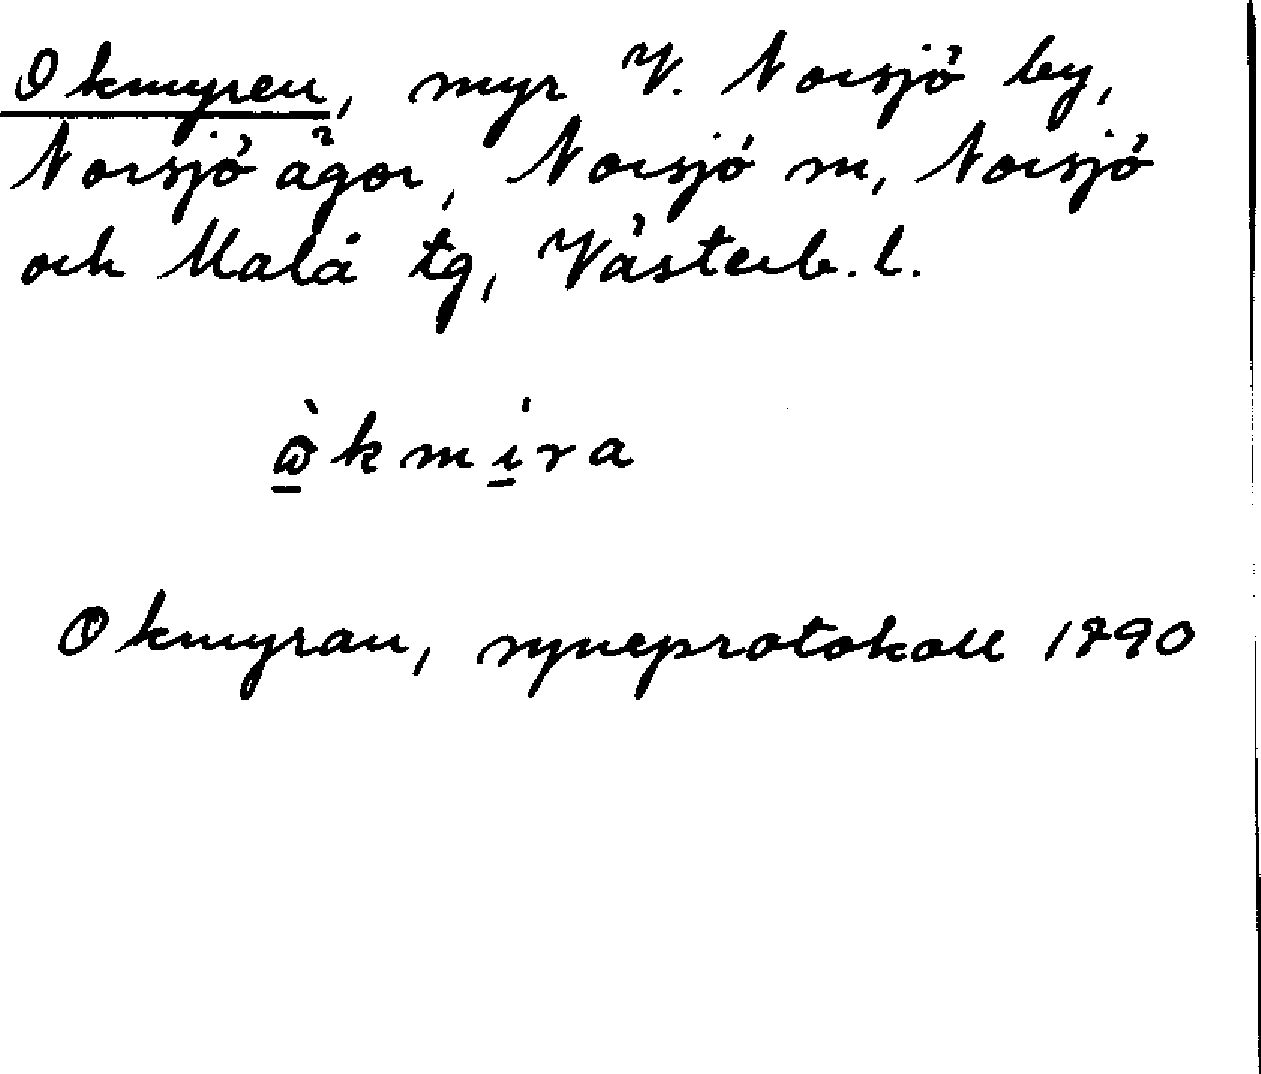 Okmyren, myr V. Norsjö by,
Norsjö ägor, Norsjö sn, Norsjö
och Malå tg, Västerb. l.
ὼ̱kmi̱ra
Okmyran, syneprotokoll 1890